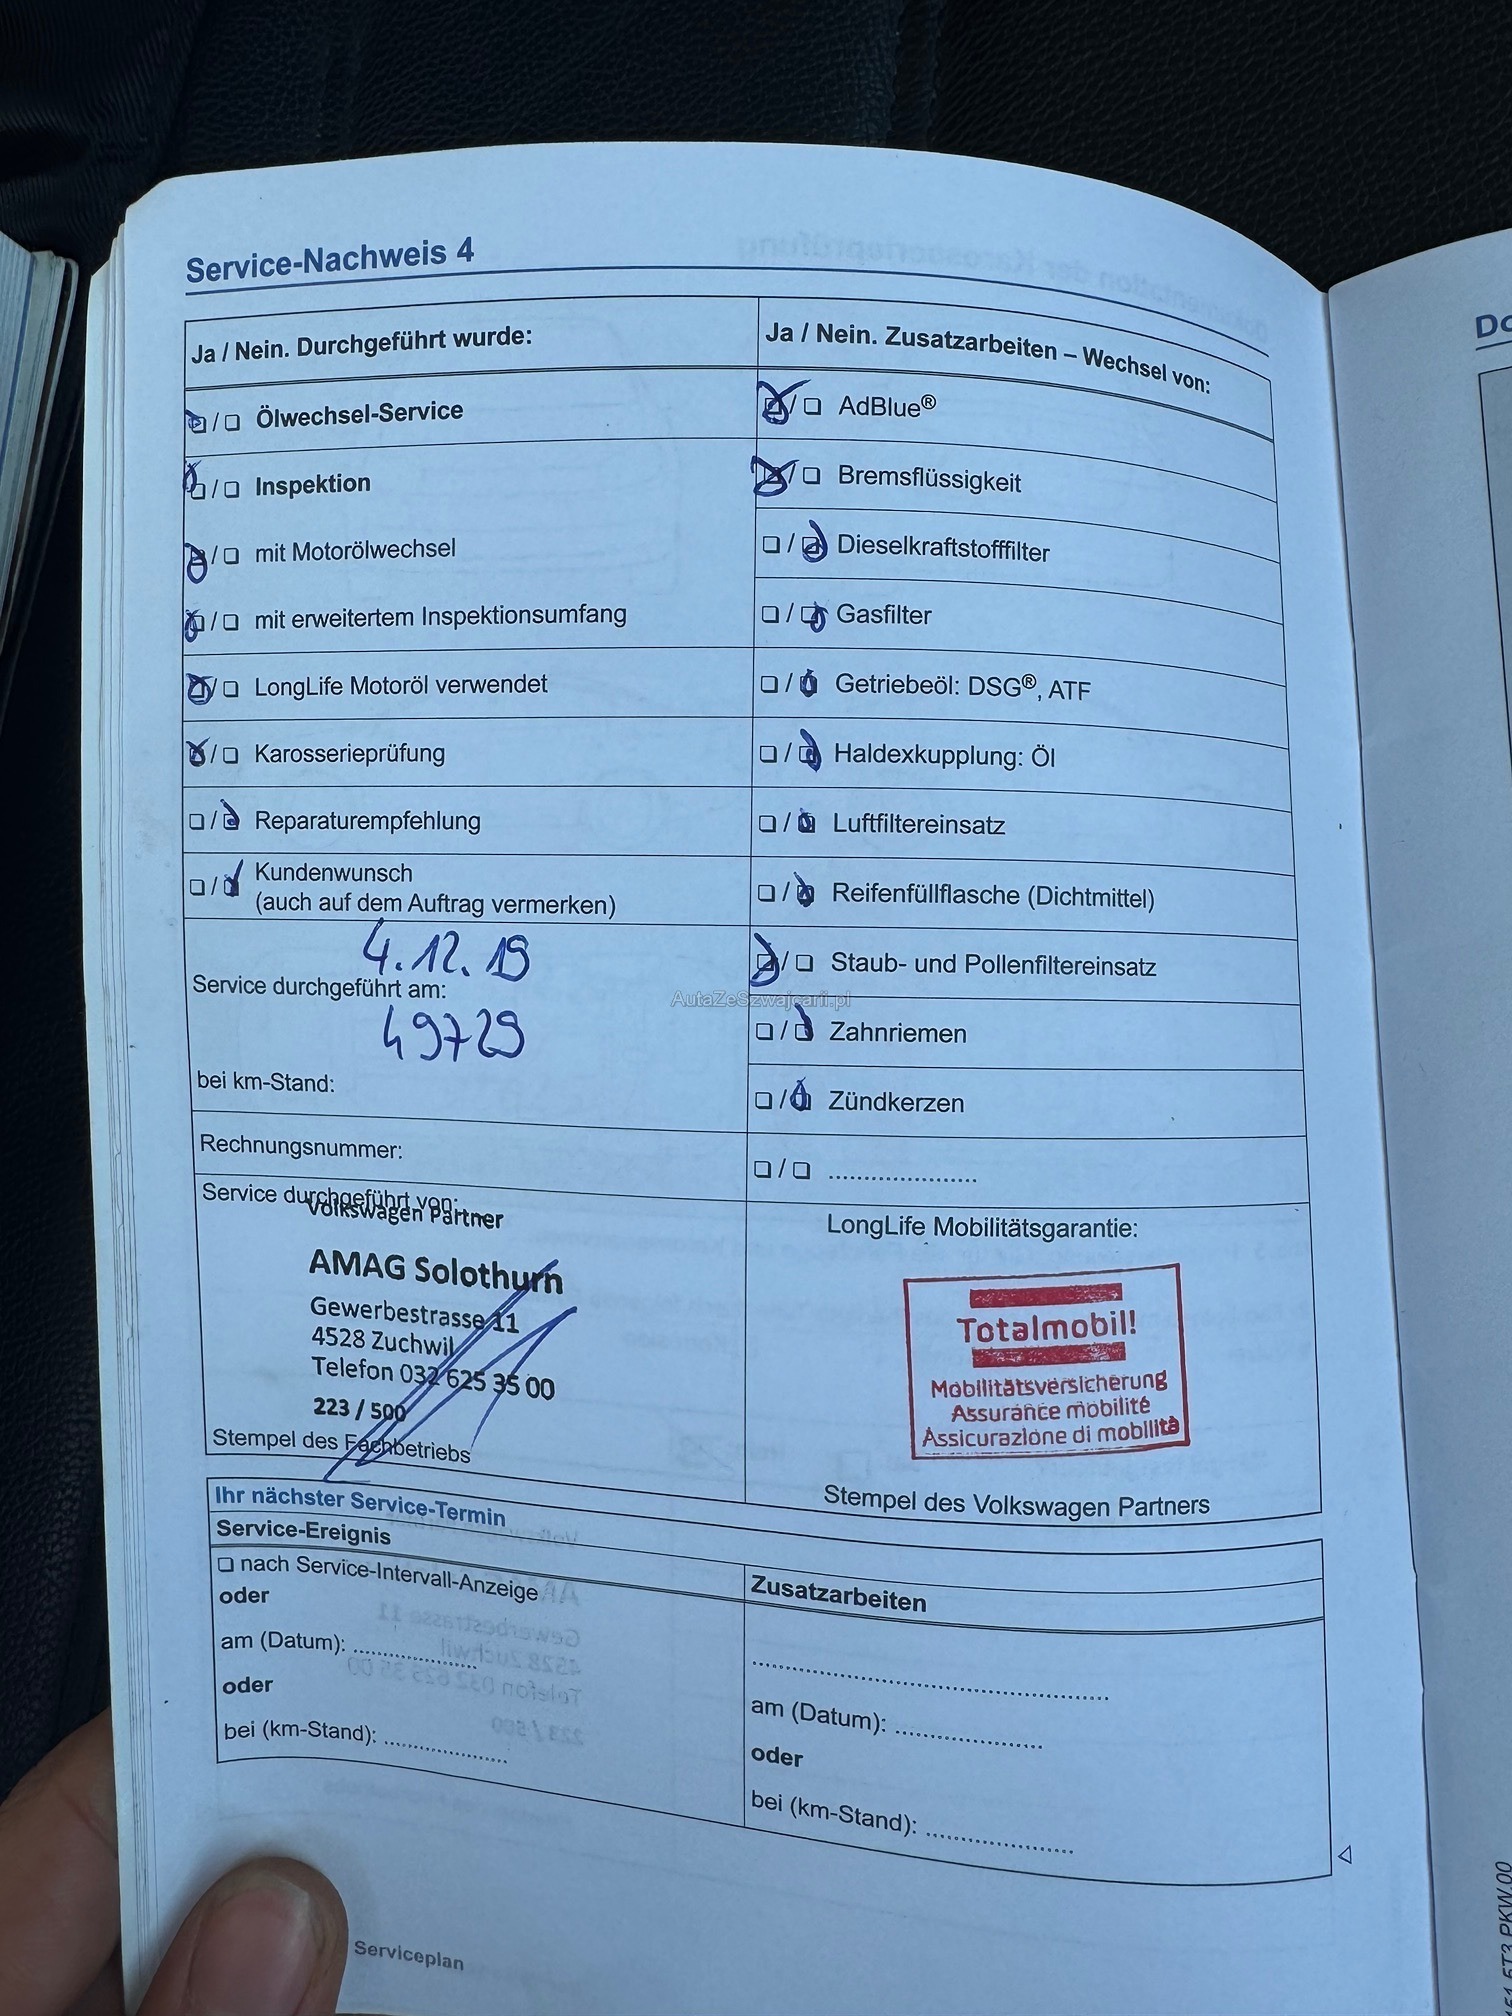 Service-Nachweis 4
Ja / Nein. Durchgeführt wurde:
☒ / ☐ Ölwechsel-Service
☒ / ☐ Inspektion
☒ / ☐ mit Motorölwechsel
☒ / ☐ mit erweitertem Inspektionsumfang
☒ / ☐ LongLife Motoröl verwendet
☒ / ☐ Karosserieprüfung
☐ / ☒ Reparaturempfehlung
☐ / ☒ Kundenwunsch
(auch auf dem Auftrag vermerken)
4.12.19
Service durchgeführt am:
49729
bei km-Stand:
Rechnungsnummer:
Service durchgeführt von:
Volkswagen Partner
AMAG Solothurn
Gewerbestrasse 11
4528 Zuchwil
Telefon 032 625 35 00
223 / 500
Stempel des Fachbetriebs
Ja / Nein. Zusatzarbeiten – Wechsel von:
☒ / ☐ AdBlue®
☒ / ☐ Bremsflüssigkeit
☐ / ☒ Dieselkraftstofffilter
☐ / ☒ Gasfilter
☐ / ☒ Getriebeöl: DSG®, ATF
☐ / ☒ Haldexkupplung: Öl
☐ / ☒ Luftfiltereinsatz
☐ / ☒ Reifenfüllflasche (Dichtmittel)
☒ / ☐ Staub- und Pollenfiltereinsatz
AutaZeSzwajcarii.pl
☐ / ☒ Zahnriemen
☐ / ☒ Zündkerzen
☐ / ☐ ......................
LongLife Mobilitätsgarantie:
Totalmobil!
Mobilitätsversicherung
Assurance mobilité
Assicurazione di mobilità
Stempel des Volkswagen Partners
Ihr nächster Service-Termin
Service-Ereignis
☐ nach Service-Intervall-Anzeige
oder
am (Datum): ..................
oder
bei (km-Stand): ..................
Zusatzarbeiten
......................................................
am (Datum): ......................
oder
bei (km-Stand): ......................
Serviceplan